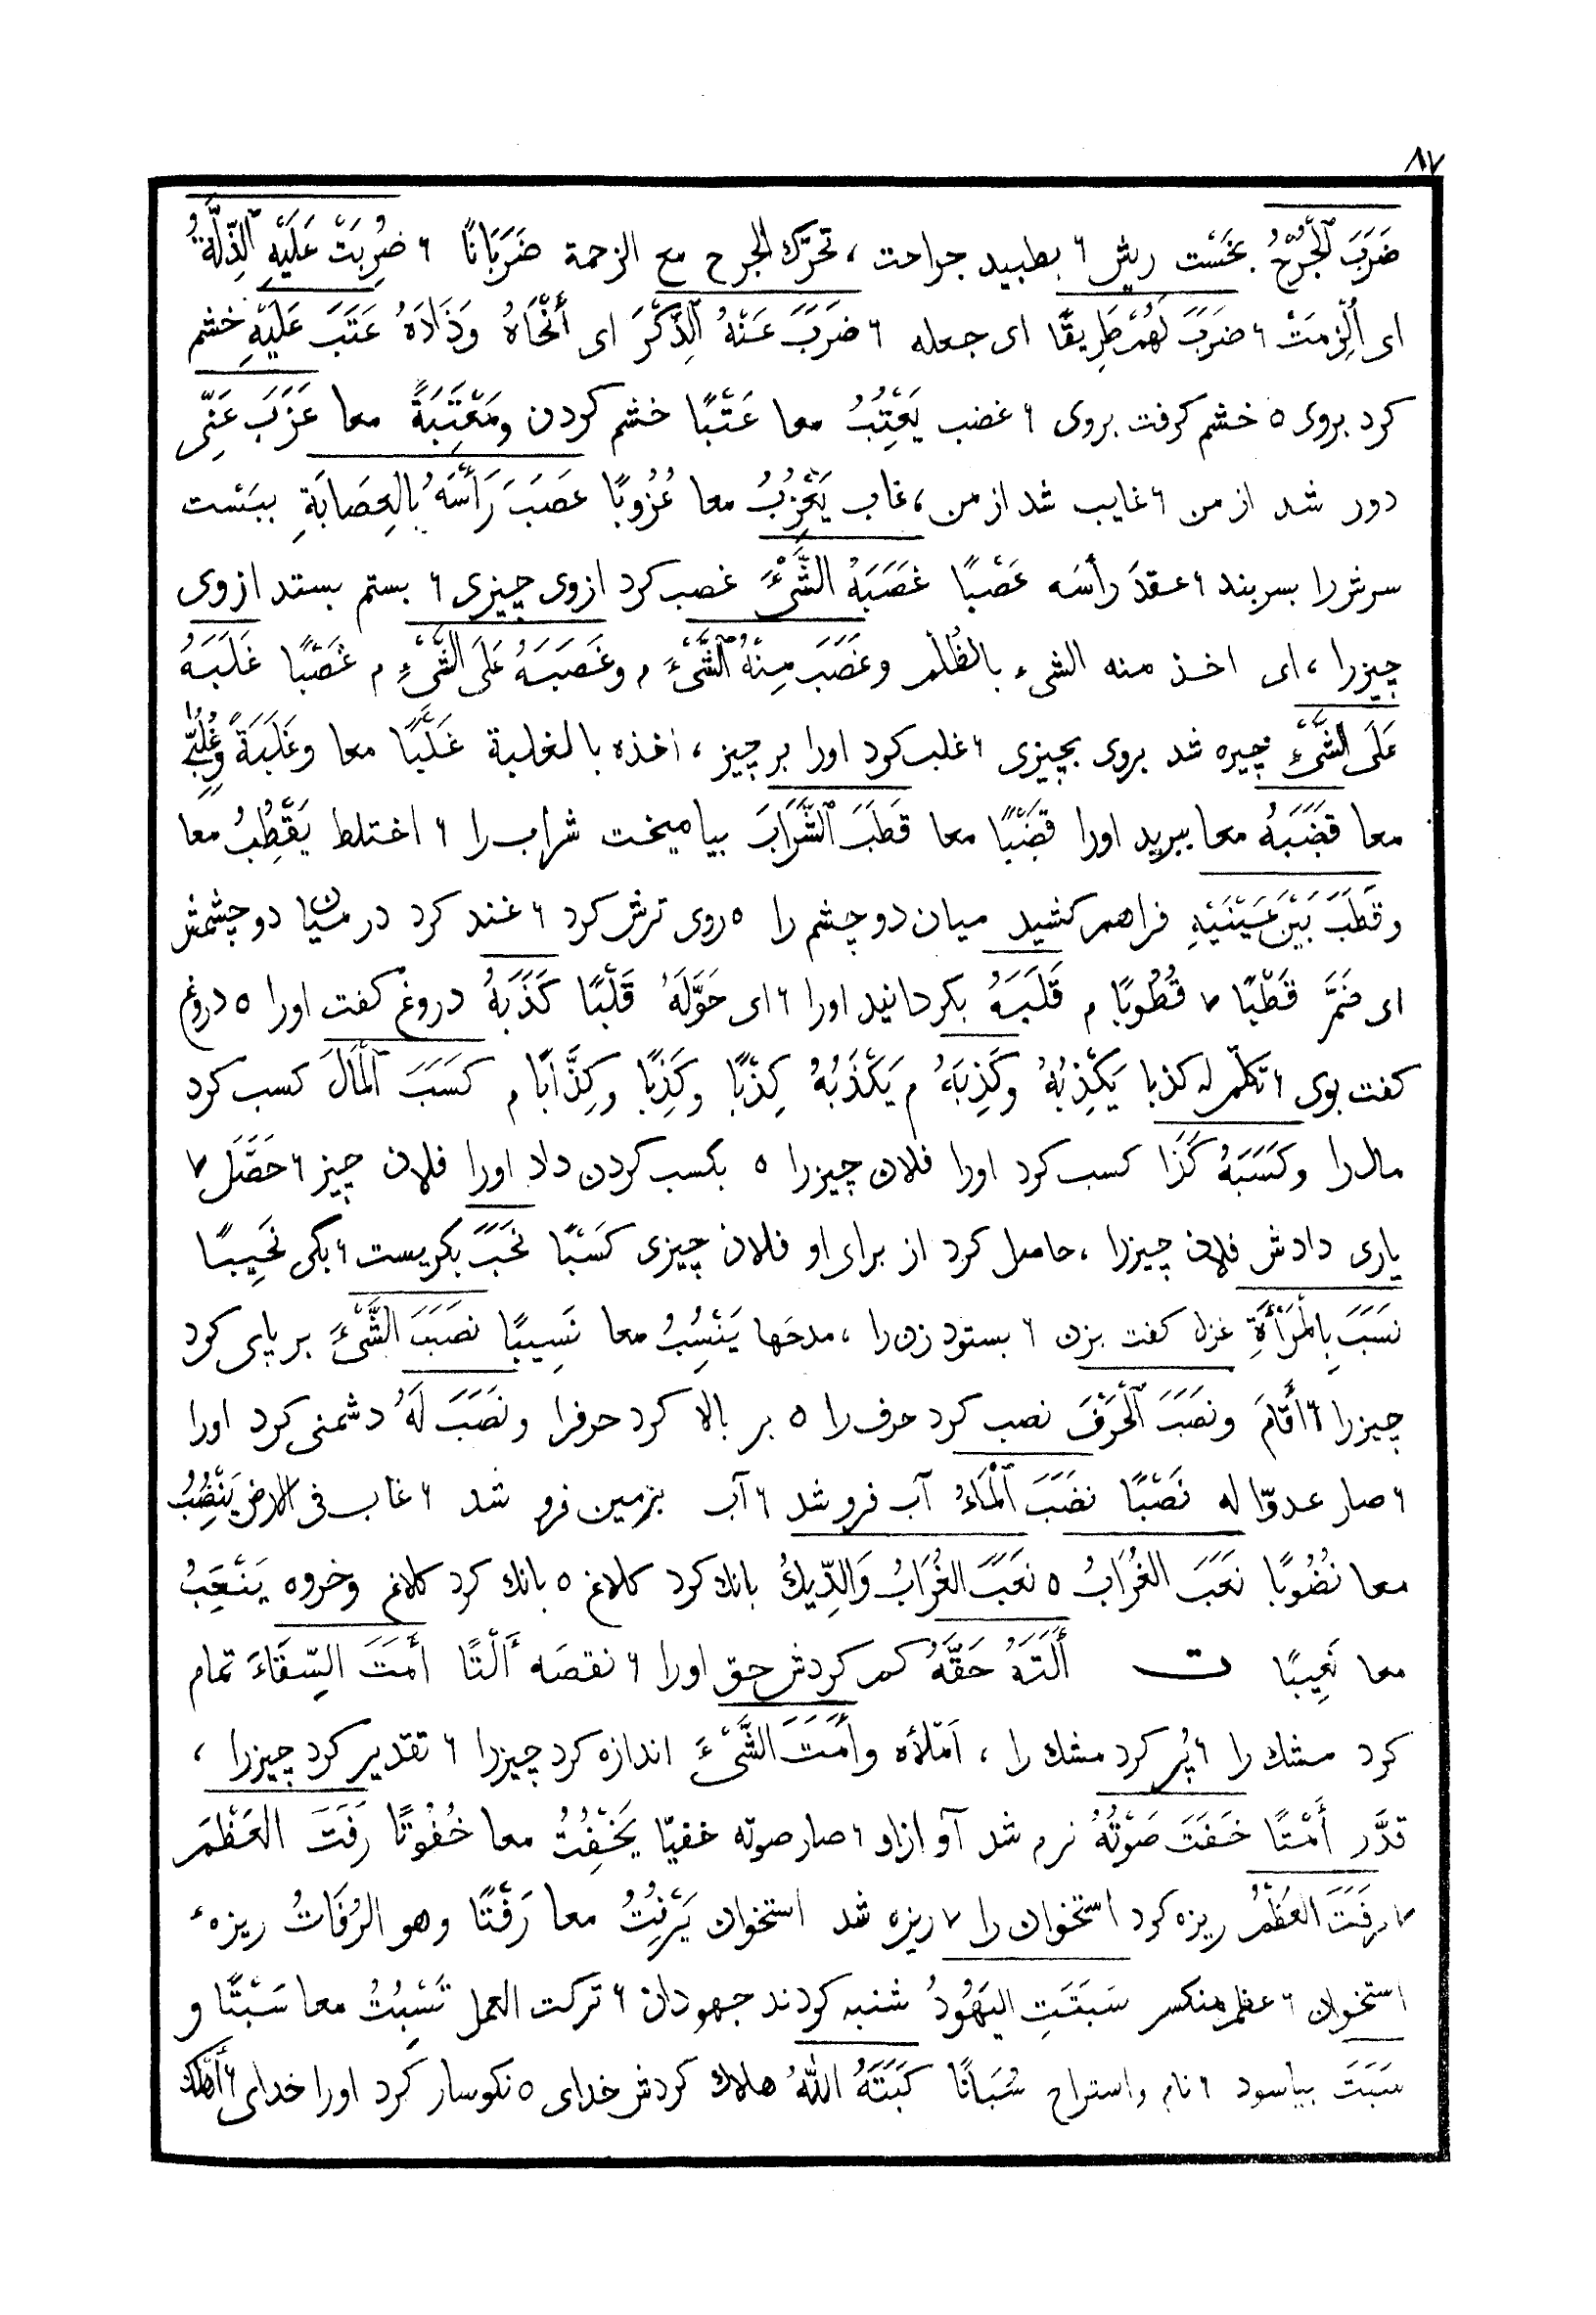 ۸۷
ضَرَبَ ٱلْجُرْحُ بخَسْت ریش ۶ بطبید جراحت ، تحرّك الجرح مع الزحمة ضَرَبَانًا ۶ ضُرِبَتْ عَلَيْهِ ٱلذِّلَّةُ
ای اُلْزِمَتْ ۶ ضَرَبَ لَهُمْ طَرِيقًا ای جعله ۶ ضَرَبَ عَنْهُ ٱلذِّكْرَ ای أَنْحَاهُ وَذَادَهُ عَتَبَ عَلَيْهِ خشم
کرد بروی ۵ خشم کرفت بروی ۶ غضب يَعْتِبُ معا عَتْبًا خشم کردن ومَعْتِبَةً معا عَزَبَ عَنِّی
دور شد از من ۶ غایب شد از من ، غاب يَعْزِبُ معا عُزُوبًا عَصَبَ رَأْسَهُ بالعِصَابَةِ ببَسْت
سرش را بسربند ۶ عقدَ رأسَه عَصْبًا غَصَبَهُ الشَّیْءَ غصب کرد ازوی چیزی ۶ بستم بستد ازوی
چیزرا ، ای اخذ منه الشیء بالظُلْم وغَصَبَ مِنْهُ ٱلشَّیْءَ م وغَصَبَهُ عَلَی الشَّیْءِ م غَصْبًا غَلَبَهُ
عَلَی الشَّیْءِ چیره شد بروی بچیزی ۶ غلب کرد اورا بر چیز ، اخذه بالغلبة غَلْبًا معا وغَلَبَةً وغُلُبَّی
معا قَضَبَهُ معا ببرید اورا قَضْبًا معا قَطَبَ ٱلشَّرَابَ بیامیخت شراب را ۶ اختلط يَقْطِبُ معا
وقَطَبَ بَيْنَ عَيْنَيْهِ فراهم کشید میان دو چشم را ۵ روی ترش کرد ۶ غند کرد در میان دو چشمش
ای ضَمَّ قَطْبًا ۷ قُطُوبًا م قَلَبَهُ بکردانید اورا ۶ ای حَوَّلَهُ قَلْبًا كَذَبَهُ دروغ کفت اورا ۵ دروغ
کفت بوی ۶ تکلّم له کذبا يَكْذِبُهُ وكَذِبَهُ م يَكْذَبُهُ كِذْبًا وكَذِبًا وكِذَّابًا م كَسَبَ ٱلْمَالَ کسب کرد
مال را وكَسَبَهُ كَذَا کسب کرد اورا فلان چیزرا ۵ بکسب کردن داد اورا فلان چیز ۶ حَصَّلَ ۷
یاری دادش فلان چیزرا ، حاصل کرد از برای او فلان چیزی كَسْبًا نَحَبَ بکریست ۶ بکی نَحِيبًا
نَسَبَ بِالْمَرْأَةِ غزل کفت بزن ۶ بستود زن را ، مدحَها يَنْسِبُ معا نَسِيبًا نَصَبَ الشَّیْءَ بر پای کرد
چیزرا ۶ أَقَامَ ونَصَبَ ٱلْحَرْفَ نصب کرد حرف را ۵ بر بالا کرد حرفرا ونَصَبَ لَهُ دشمنی کرد اورا
۶ صار عدوّا له نَصْبًا نَضَبَ ٱلْمَاءُ آب فرو شد ۶ آب بزمین فرو شد ۶ غاب فی الارض يَنْضِبُ
معا نُضُوبًا نَعَبَ الغُرَابُ ۵ نَعَبَ الغُرَابُ وَالدِّيكُ بانك کرد کلاغ ۵ بانك کرد کلاغ وخروه يَنْعِبُ
معا نَعِيبًا ت أَلَتَهُ حَقَّهُ کم کردش حق اورا ۶ نقصَه أَلْتًا أَمَتَ السِّقَاءَ تمام
کرد مشك را ۶ پُر کرد مشك را ، اَمْلأه وأَمَتَ الشَّیْءَ اندازه کرد چیزرا ۶ تقدیر کرد چیزرا ،
قدَّر أَمْتًا خَفَتَ صَوْتُهُ نرم شد آواز او ۶ صار صوته خفیّا يَخْفِتُ معا خُفُوتًا رَفَتَ العَظْمَ
۷ رَفَتَ العَظْمُ ریزه کرد استخوان را ۷ ریزه شد استخوان يَرْفِتُ معا رَفْتًا وهو الرُفَاتُ ریزهٔ
استخوان ۶ عظم منکسر سَبَتَتِ اليَهُودُ شنبه کردند جهودان ۶ ترکت العمل تَسْبِتُ معا سَبْتًا و
سَبَتَ بیاسود ۶ نام واستراح سُبَاتًا كَبَتَهُ اللهُ هلاك کردش خدای ۵ نکوسار کرد اورا خدای ۶ أهلك